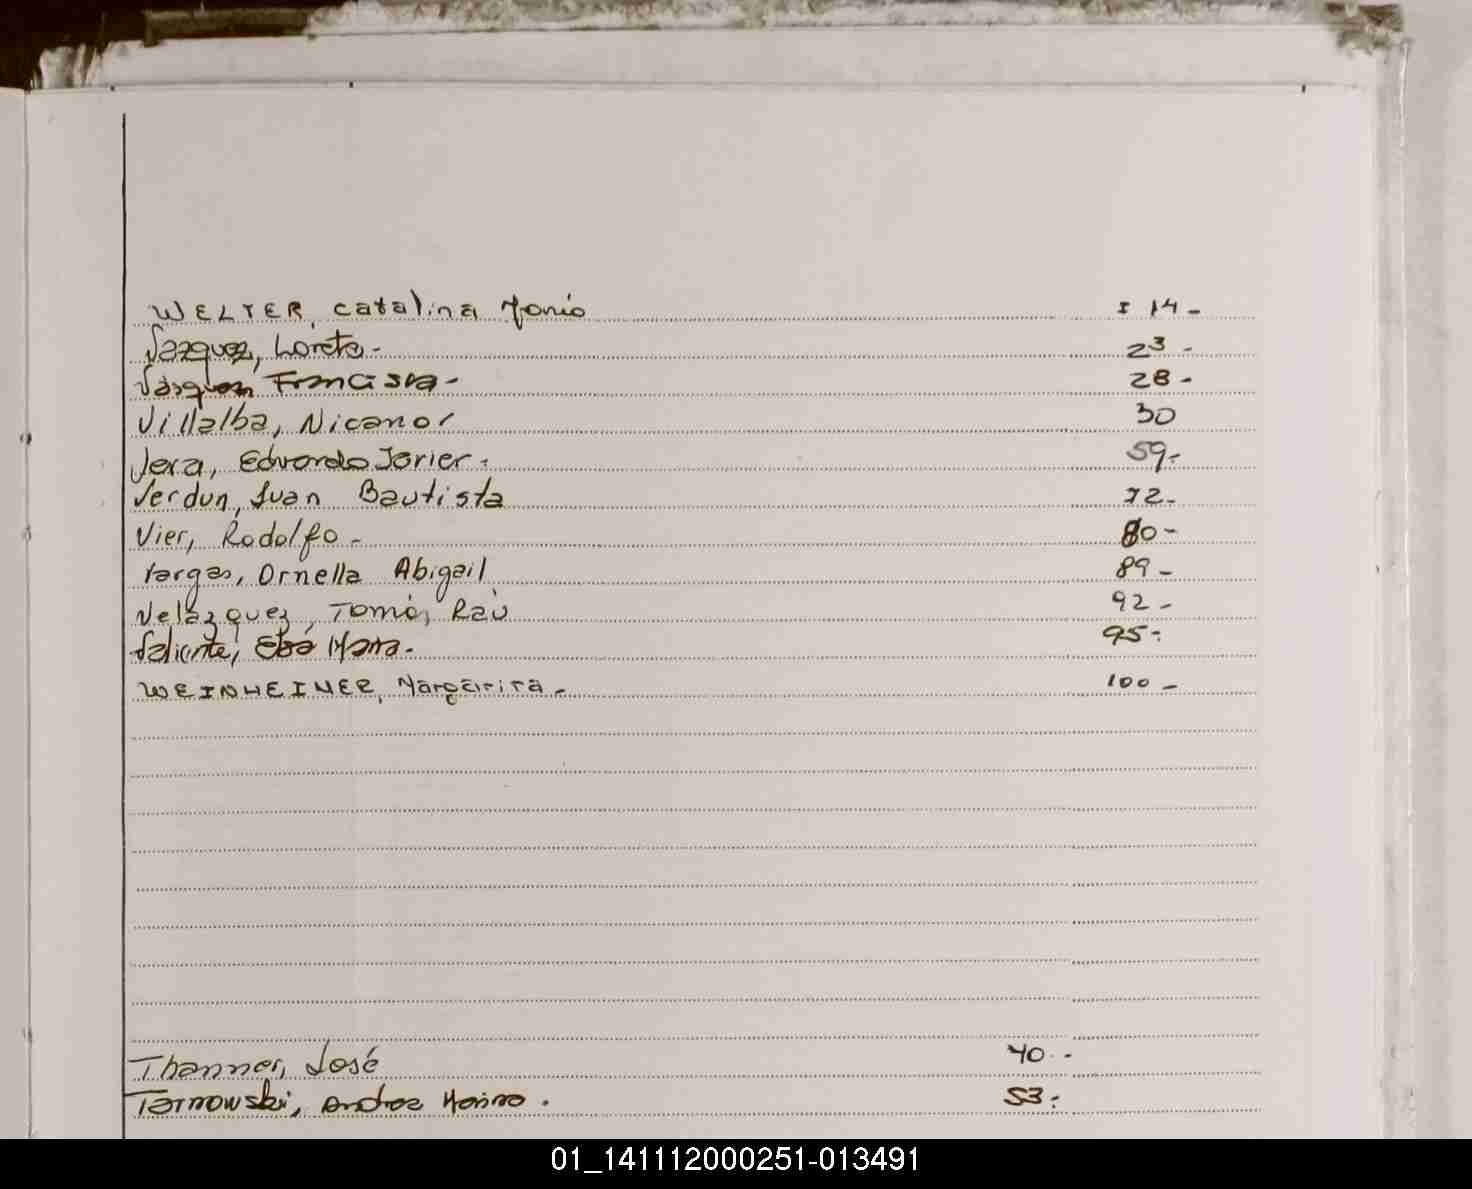 WELTER, Catalina Maria I 14-
Vazquez, Loreta- 23-
Vasquez Francisca- 28-
Villalba, Nicanor 30
Vera, Eduardo Javier- 59-
Verdun, Juan Bautista 72-
Vier, Rodolfo- 80-
Vargas, Ornella Abigail 89-
Velázquez, Tomás Raú 92-
Valiente, Maria- 95-
WEINHEIMER, Margarita- 100-
Thanner, José 40--
Tarnowski, Andrea Marina. 53-
01_141112000251-013491